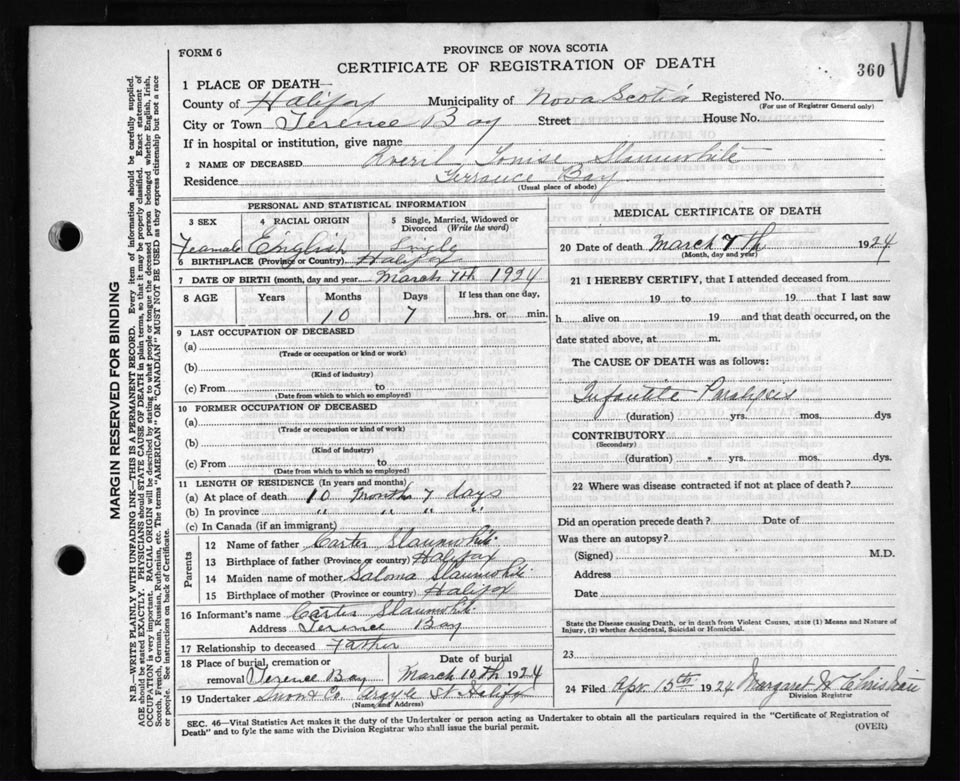 FORM 6
PROVINCE OF NOVA SCOTIA
CERTIFICATE OF REGISTRATION OF DEATH
360
1 PLACE OF DEATH—
County of Halifax Municipality of Nova Scotia Registered No.
(For use of Registrar General only)
City or Town Terence Bay Street House No.
If in hospital or institution, give name
2 NAME OF DECEASED Averil Louise Slaunwhite
Residence Terrance Bay
(Usual place of abode)
PERSONAL AND STATISTICAL INFORMATION
3 SEX 4 RACIAL ORIGIN 5 Single, Married, Widowed or Divorced (Write the word)
Feamale English Single
6 BIRTHPLACE (Province or Country) Halifax
7 DATE OF BIRTH (month, day and year) March 7th 1924
8 AGE Years Months Days If less than one day,
10 7 hrs. or min.
9 LAST OCCUPATION OF DECEASED
(a)
(Trade or occupation or kind or work)
(b)
(Kind of industry)
(c) From to
(Date from which to which so employed)
10 FORMER OCCUPATION OF DECEASED
(a)
(Trade or occupation or kind of work)
(b)
(Kind of industry)
(c) From to
(Date from which to which so employed)
11 LENGTH OF RESIDENCE (In years and months)
(a) At place of death 10 Months 7 days
(b) In province " " " "
(c) In Canada (if an immigrant)
Parents
12 Name of father Carter Slaunwhite
13 Birthplace of father (Province or country) Halifax
14 Maiden name of mother Saloma Slaunwhite
15 Birthplace of mother (Province or country) Halifax
16 Informant's name Carter Slaunwhite
Address Terence Bay
17 Relationship to deceased Father
18 Place of burial, cremation or removal Terence Bay
Date of burial March 10th 1924
19 Undertaker Snow & Co. Argyle St Halifax
(Name and Address)
MEDICAL CERTIFICATE OF DEATH
20 Date of death March 7th 1924
(Month, day and year)
21 I HEREBY CERTIFY, that I attended deceased from
19 to 19 that I last saw
h alive on 19 and that death occurred, on the
date stated above, at m.
The CAUSE OF DEATH was as follows:
Infantile Paralysis
(duration) yrs. mos. dys
CONTRIBUTORY
(Secondary)
(duration) yrs. mos. dys.
22 Where was disease contracted if not at place of death?
Did an operation precede death? Date of
Was there an autopsy?
(Signed) M.D.
Address
Date
State the Disease causing Death, or in death from Violent Causes, state (1) Means and Nature of
Injury, (2) whether Accidental, Suicidal or Homicidal.
23
24 Filed Apr 15th 1924 Margaret W Christian
Division Registrar
SEC. 46—Vital Statistics Act makes it the duty of the Undertaker or person acting as Undertaker to obtain all the particulars required in the "Certificate of Registration of
Death" and to fyle the same with the Division Registrar who shall issue the burial permit.
(OVER)
MARGIN RESERVED FOR BINDING
N.B.—WRITE PLAINLY WITH UNFADING INK—THIS IS A PERMANENT RECORD. Every item of information should be carefully supplied.
AGE should be stated EXACTLY. PHYSICIANS should STATE CAUSE OF DEATH in plain terms, so that it may be properly classified. Exact statement of
OCCUPATION is very important. RACIAL ORIGIN will be described by stating to what people or tongue the deceased person belonged whether English, Irish,
Scotch, French, German, Russian, Ruthenian, etc. The terms "AMERICAN" OR "CANADIAN" MUST NOT BE USED as they express citizenship but not a race
or people. See instructions on back of Certificate.